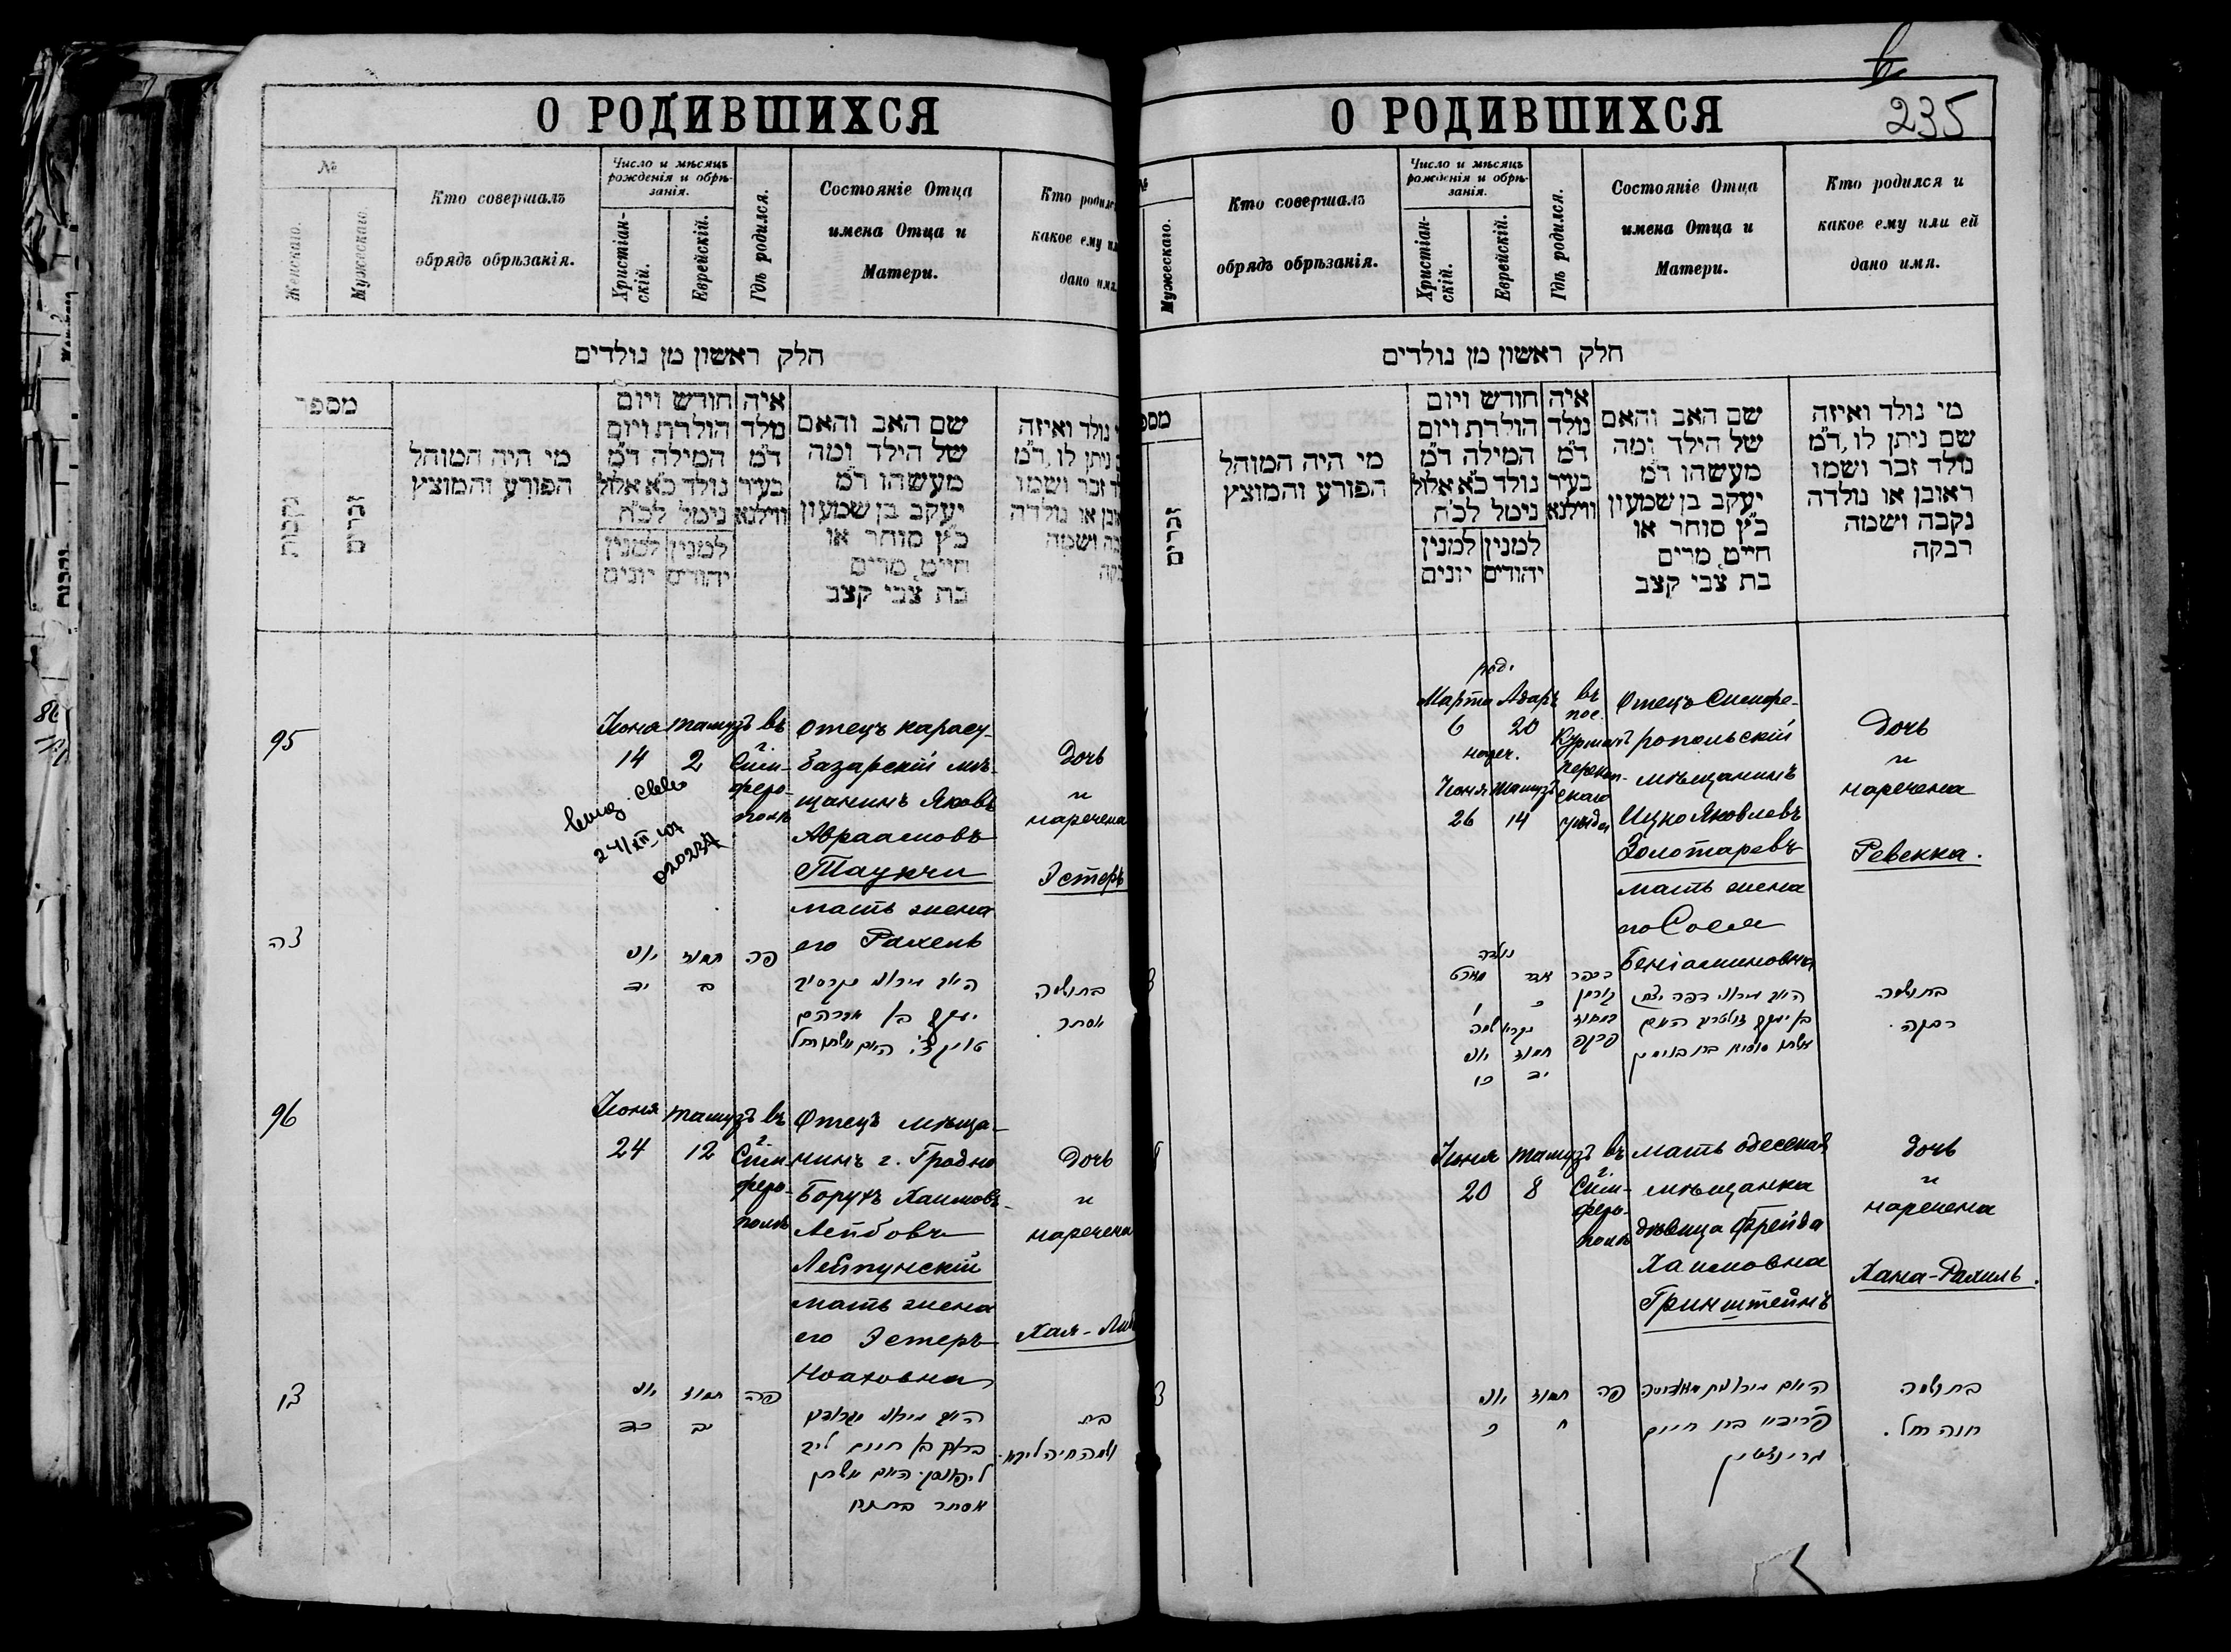 О РОДИВШИХСЯ
№
Женскаго.
Мужескаго.
Кто совершалъ
обрядъ обрѣзанія.
Число и мѣсяцъ
рожденія и обрѣ-
занія.
Христіан-
скій.
Еврейскій.
Гдѣ родился.
Состояніе Отца
имена Отца и
Матери.
Кто родился
какое ему
дано имя.
חלק ראשון מן נולדים
מספר
נקבות
זכרים
מי היה המוהל
הפורע והמוצץ
חודש ויום
הולדת ויום
המילה ד״מ
נולד כ״א אלול
נימל לכ״ח
למנין למנין
יהודים יונים
איה
נולד
ד״מ
בעיר
ווילנא
שם האב והאם
של הילד ומה
מעשהו ד״מ
יעקב בן שמעון
כ״ץ סוחר או
חייט, מרים
בת צבי קצב
נולד ואיזה
ניתן לו, ד״מ
זכר ושמו
או נולדה
ושמה
95
Іюня
14
Тамузъ
2
въ
г.
Сим-
феро-
полѣ
Отецъ карасу-
базарскій мѣ-
щанинъ Яковъ
Авраамовъ
Таукчи
мать жена
его Рахель
Дочь
и
наречена
Эстеръ
צה
יוני
יד
תמוז
ב
פה
יעקב בן אברהם
בת ושמה
אסתר
96
Іюня
24
Тамузъ
12
въ
г.
Сим-
феро-
полѣ
Отецъ мѣща-
нинъ г. Гродно
Борухъ Хаимовъ-
Лейбовъ
Лейпунскій
мать жена
его Эстеръ
Ноаховна
Дочь
и
наречена
Хая-
צו
יוני
כד
תמוז
יב
פה
ברוך בן חיים ליב
בת
О РОДИВШИХСЯ
235
Мужескаго.
Кто совершалъ
обрядъ обрѣзанія.
Число и мѣсяцъ
рожденія и обрѣ-
занія.
Христіан-
скій.
Еврейскій.
Гдѣ родился.
Состояніе Отца
имена Отца и
Матери.
Кто родился и
какое ему или ей
дано имя.
חלק ראשון מן נולדים
זכרים
מי היה המוהל
הפורע והמוצץ
חודש ויום
הולדת ויום
המילה ד״מ
נולד כ״א אלול
נימל לכ״ח
למנין למנין
יהודים יונים
איה
נולד
ד״מ
בעיר
ווילנא
שם האב והאם
של הילד ומה
מעשהו ד״מ
יעקב בן שמעון
כ״ץ סוחר או
חייט, מרים
בת צבי קצב
מי נולד ואיזה
שם ניתן לו, ד״מ
נולד זכר ושמו
ראובן או נולדה
נקבה ושמה
רבקה
род.
Марта
6
Адаръ
20
нареч.
Іюня
26
Тамузъ
14
въ
пос.
Курманъ
Перекоп-
скаго
уѣзда
Отецъ Симфе-
ропольскій
мѣщанинъ
Ицко Яковлевъ
Золотаревъ
мать жена
его Сося
Беніаминовна
Дочь
и
наречена
Ревекка.
נולדה
מארט
ו
אדר
כ
יוני
כו
תמוז
יד
בת ושמה
רבקה.
Іюня
20
Тамузъ
8
въ
г.
Сим-
феро-
полѣ
мать одесская
мѣщанка
дѣвица Фрейда
Хаимовна
Гринштейнъ
Дочь
и
наречена
Хана-Рахиль.
יוני
כ
תמוז
ח
פה
בת חיים
גרינשטיין
בת ושמה
חנה רחל.